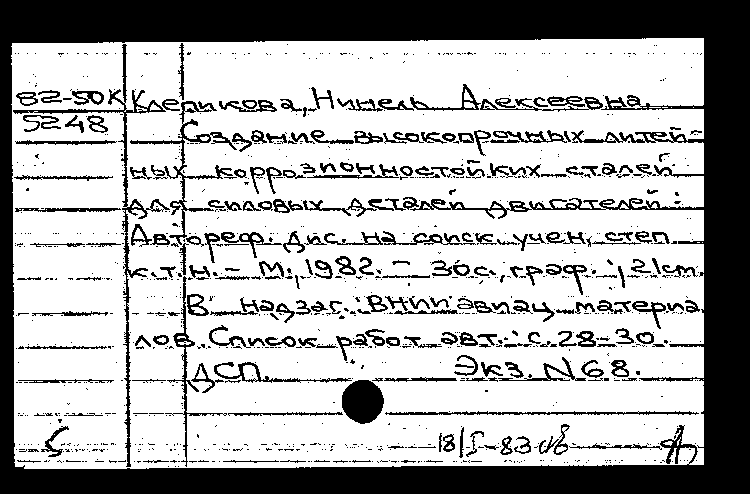 82-50К Клепикова, Нинель Алексеевна.
5248 Создание высокопрочных литей-
ных коррозионностойких сталей
для силовых деталей двигателей:
Автореф. дис. на соиск. учен, степ
к.т.н. - М., 1982. - 30с., граф.; 21см.
В надзаг.: ВНИИ авиац. материа
лов. Список работ авт.: с. 28-30.
ДСП. Экз. N 68.
18/I-83